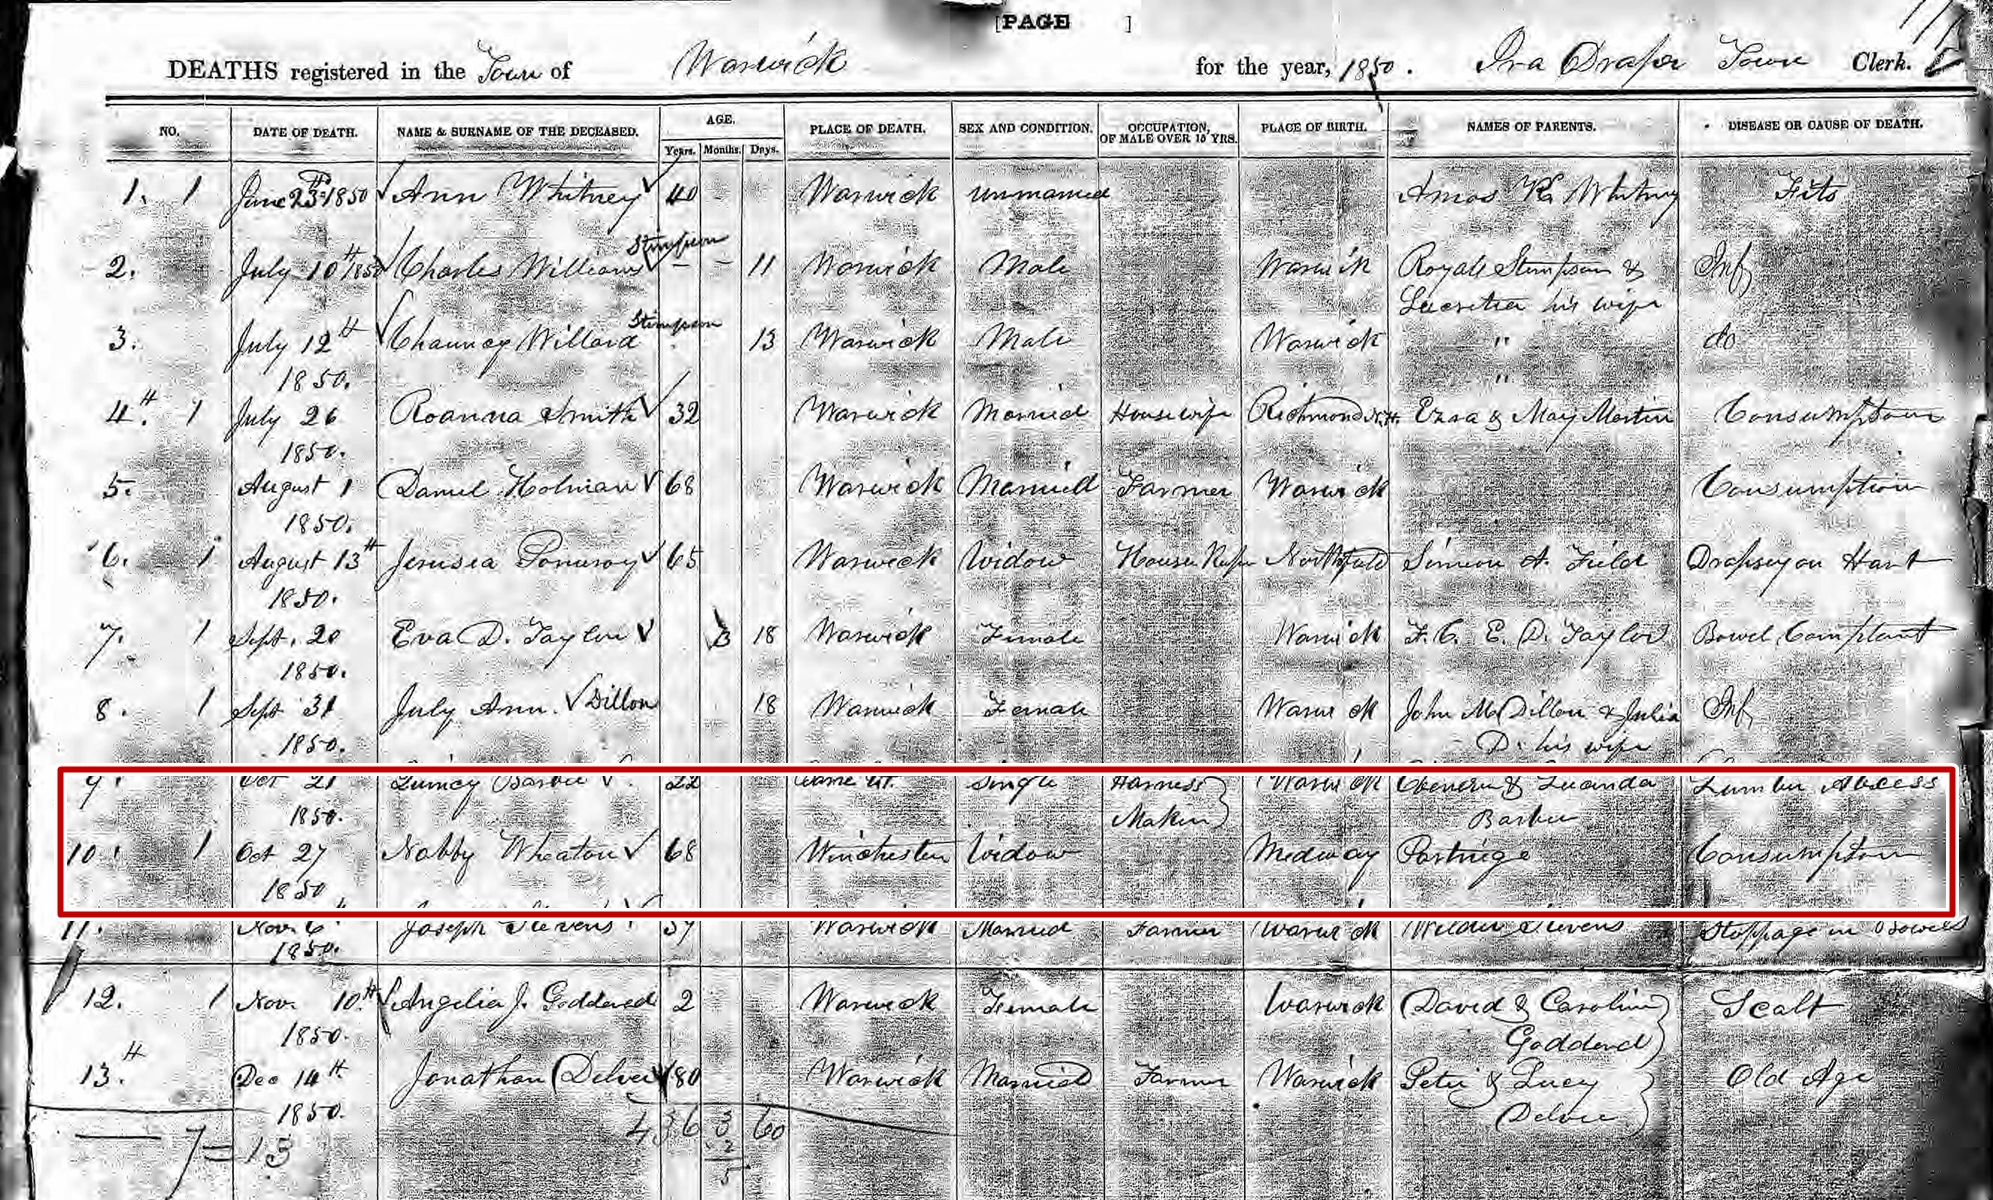 [PAGE ]
DEATHS registered in the Town of Warwick for the year, 1850. Ira Draper Town Clerk.
NO. DATE OF DEATH. NAME & SURNAME OF THE DECEASED. AGE. PLACE OF DEATH. SEX AND CONDITION. OCCUPATION, OF MALE OVER 15 YRS. PLACE OF BIRTH. NAMES OF PARENTS. DISEASE OR CAUSE OF DEATH.
Years. Months. Days.
1. 1 June 23 1850 Ann Whitney 40 Warwick unmarried Amos Whitney Fits
Stimpson
2. July 10th 1850 Charles Williams - - 11 Warwick Male Warwick Royal Stimpson & Inf
Lucretia his wife
Stimpson
3. July 12th Chauncy Willard 13 Warwick Male Warwick " do
1850. "
4. 1 July 26 Roanna Smith 32 Warwick Married Housewife Richmond N.H. Ezra & May Martin Consumption
1850.
5. August 1 Daniel Holman 68 Warwick Married Farmer Warwick Consumption
1850.
6. 1 August 13th Jerusia Pomroy 65 Warwick Widow House Northfield Simeon A. Field Dropsy on Hart
1850.
7. 1 Sept. 20 Eva D. Taylor 3 18 Warwick Female Warwick F. C. E. D. Taylor Bowel Complaint
1850.
8. 1 Sept 31 July Ann Dillon 18 Warwick Female Warwick John M Dillon & Julia Inf
1850. D. his wife
9. Oct 21 Quincy Barber 22 Single Harness Warwick & Luanda Lumber Abcess
1850. Maker Barber
10. 1 Oct 27 Nabby Wheaton 68 Winchester Widow Medway Partrige Consumption
1850
11. Nov 6 Joseph Stevens Warwick Married Farmer Warwick Wilder Stevens Stoppage in Bowels
1850.
12. 1 Nov 10th Angelia J. Goddard 2 Warwick Female Warwick David & Caroline Scalt
1850. Goddard
13. Dec 14th Jonathan Delvee 80 Warwick Married Farmer Warwick Peter & Lucy Old Age
1850. Delvee
436 3 60
7 = 13 2
5